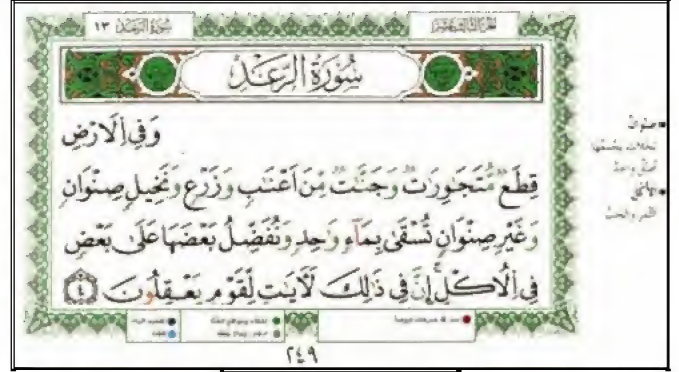 سُورَةُ الرَّعْدِ ١٣
الجزء الثالث عشر
سُورَةُ الرَّعْدِ
وَفِي اِلَارْضِ
قِطَعٌ مُّتَجَٰوِرَٰتٌ وَجَنَّٰتٌ مِّنَ اَعْنَٰبٍ وَزَرْعٍ وَنَخِيلٍ صِنْوَانٍ
وَغَيْرِ صِنْوَانٍ تُسْقَىٰ بِمَآءٍ وَٰحِدٍ وَنُفَضِّلُ بَعْضَهَا عَلَىٰ بَعْضٍ
فِي اِلُاكْلِ إِنَّ فِي ذَٰلِكَ لَأٓيَٰتٍ لِّقَوْمٍ يَعْقِلُونَ ٤
صنوان
نخلات يجمعها
أصل واحد
٢٤٩